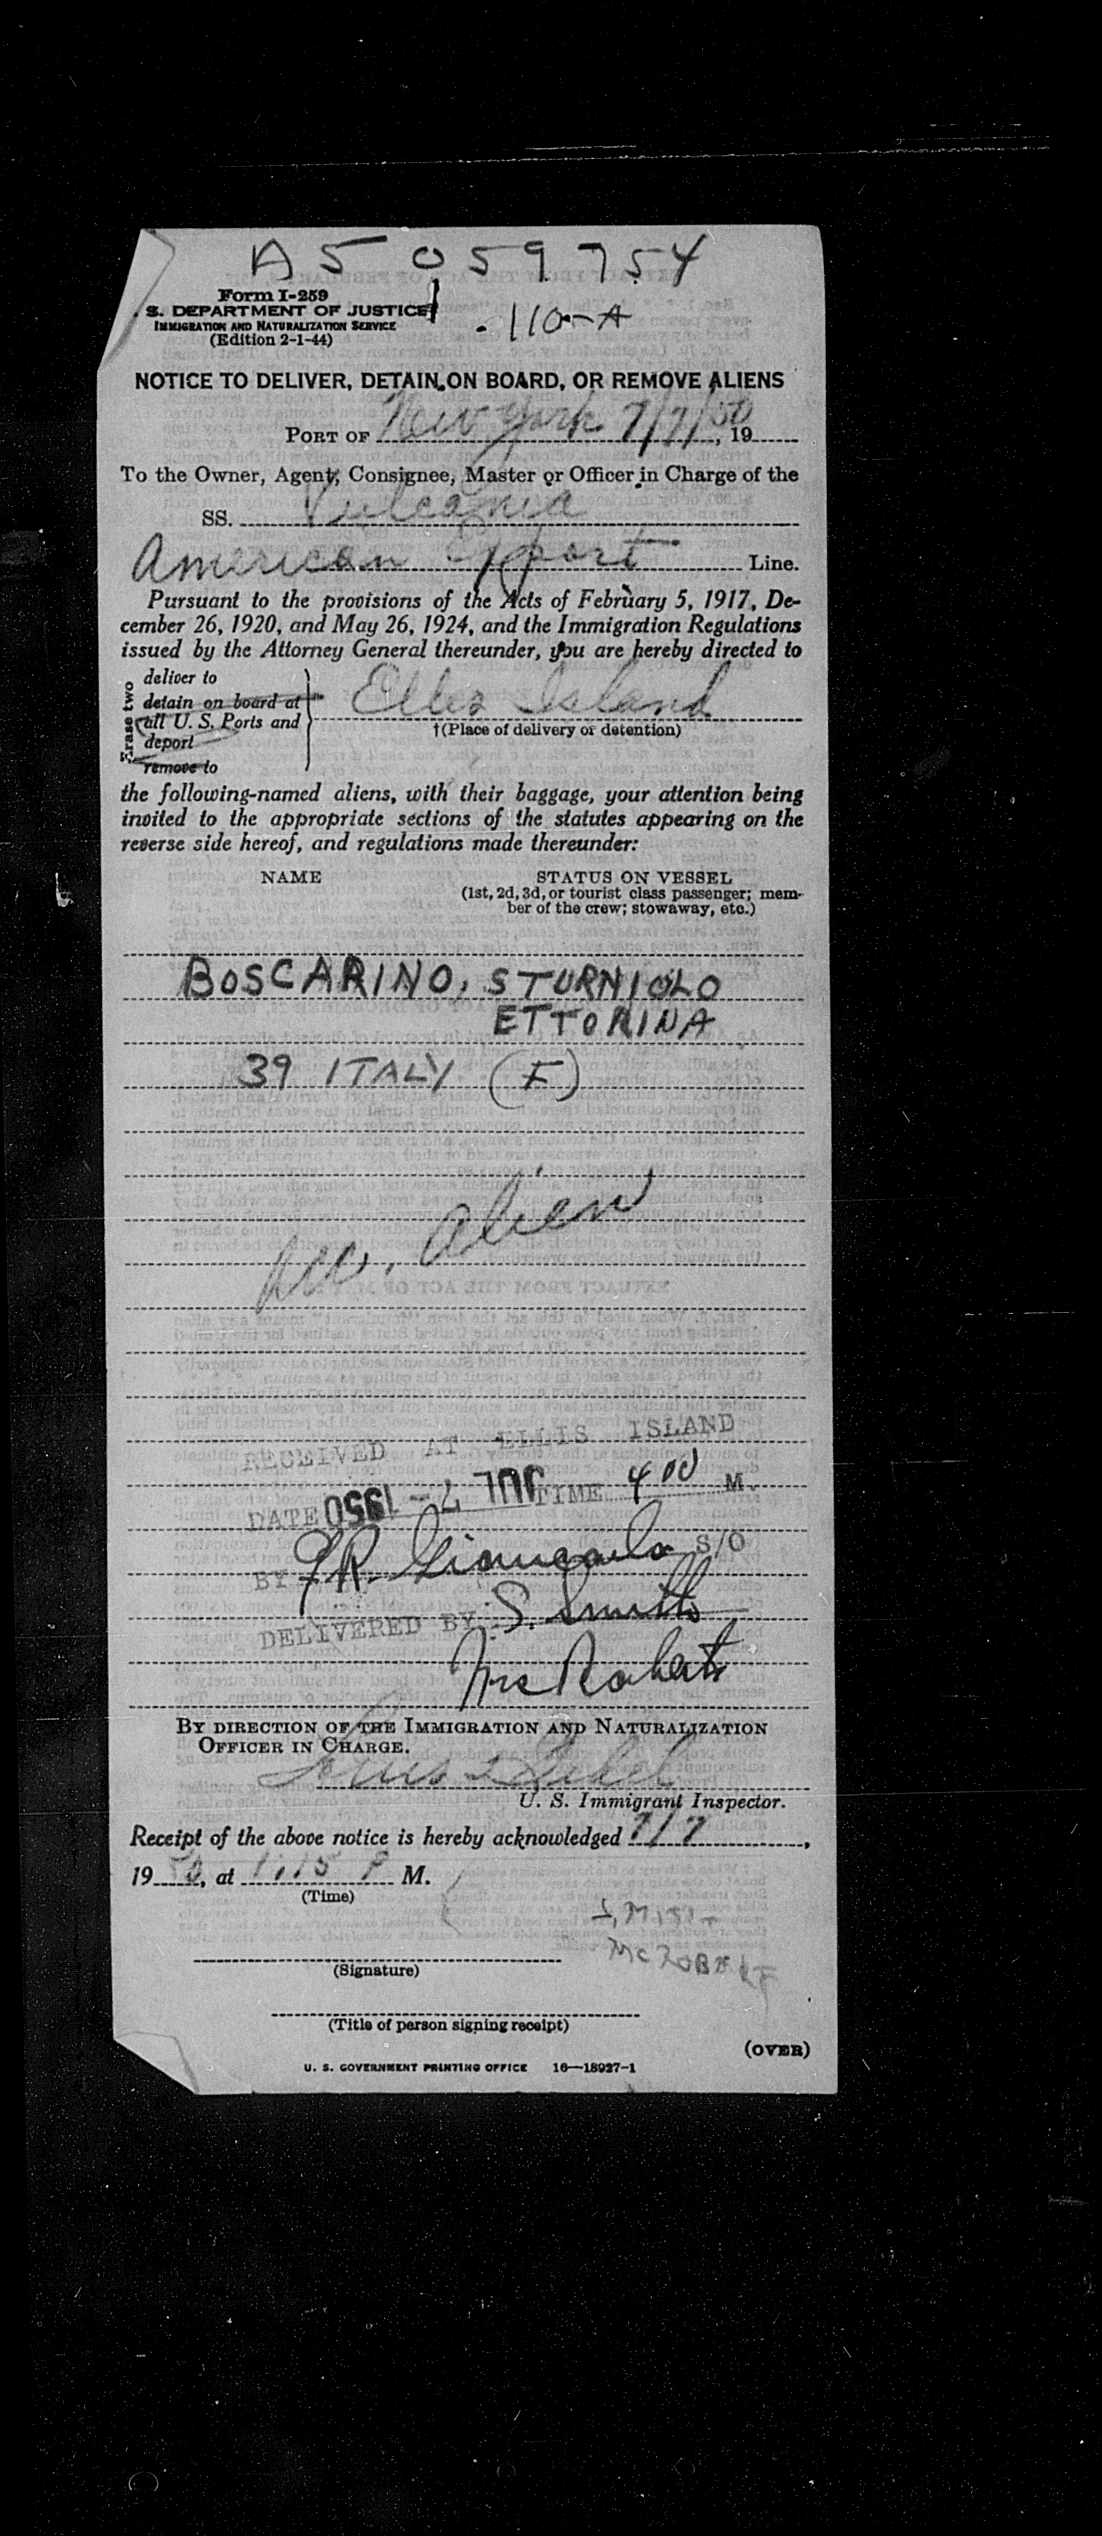 A5 059754
Form I-259
. S. DEPARTMENT OF JUSTICE
IMMIGRATION AND NATURALIZATION SERVICE
(Edition 2-1-44)
110-A
NOTICE TO DELIVER, DETAIN ON BOARD, OR REMOVE ALIENS
PORT OF New York 7/7/50, 19
To the Owner, Agent, Consignee, Master or Officer in Charge of the
SS. Vulcania
American Export Line.
Pursuant to the provisions of the Acts of February 5, 1917, De-
cember 26, 1920, and May 26, 1924, and the Immigration Regulations
issued by the Attorney General thereunder, you are hereby directed to
Erase two
deliver to
detain on board at
all U. S. Ports and
deport
remove to
Ellis Island
†(Place of delivery or detention)
the following-named aliens, with their baggage, your attention being
invited to the appropriate sections of the statutes appearing on the
reverse side hereof, and regulations made thereunder:
NAME
STATUS ON VESSEL
(1st, 2d, 3d, or tourist class passenger; mem-
ber of the crew; stowaway, etc.)
BOSCARINO, STURNIOLO
ETTORINA
39 ITALY (F)
alien
RECEIVED AT ELLIS ISLAND
DATE JUL 7 - 1950 TIME 4 00 M.
BY S/O
DELIVERED BY S. Smith
BY DIRECTION OF THE IMMIGRATION AND NATURALIZATION
OFFICER IN CHARGE.
Louis
U. S. Immigrant Inspector.
Receipt of the above notice is hereby acknowledged 7/7,
19 50, at 1:15 P M.
(Time)
(Signature)
(Title of person signing receipt)
(OVER)
U. S. GOVERNMENT PRINTING OFFICE 16—18927-1